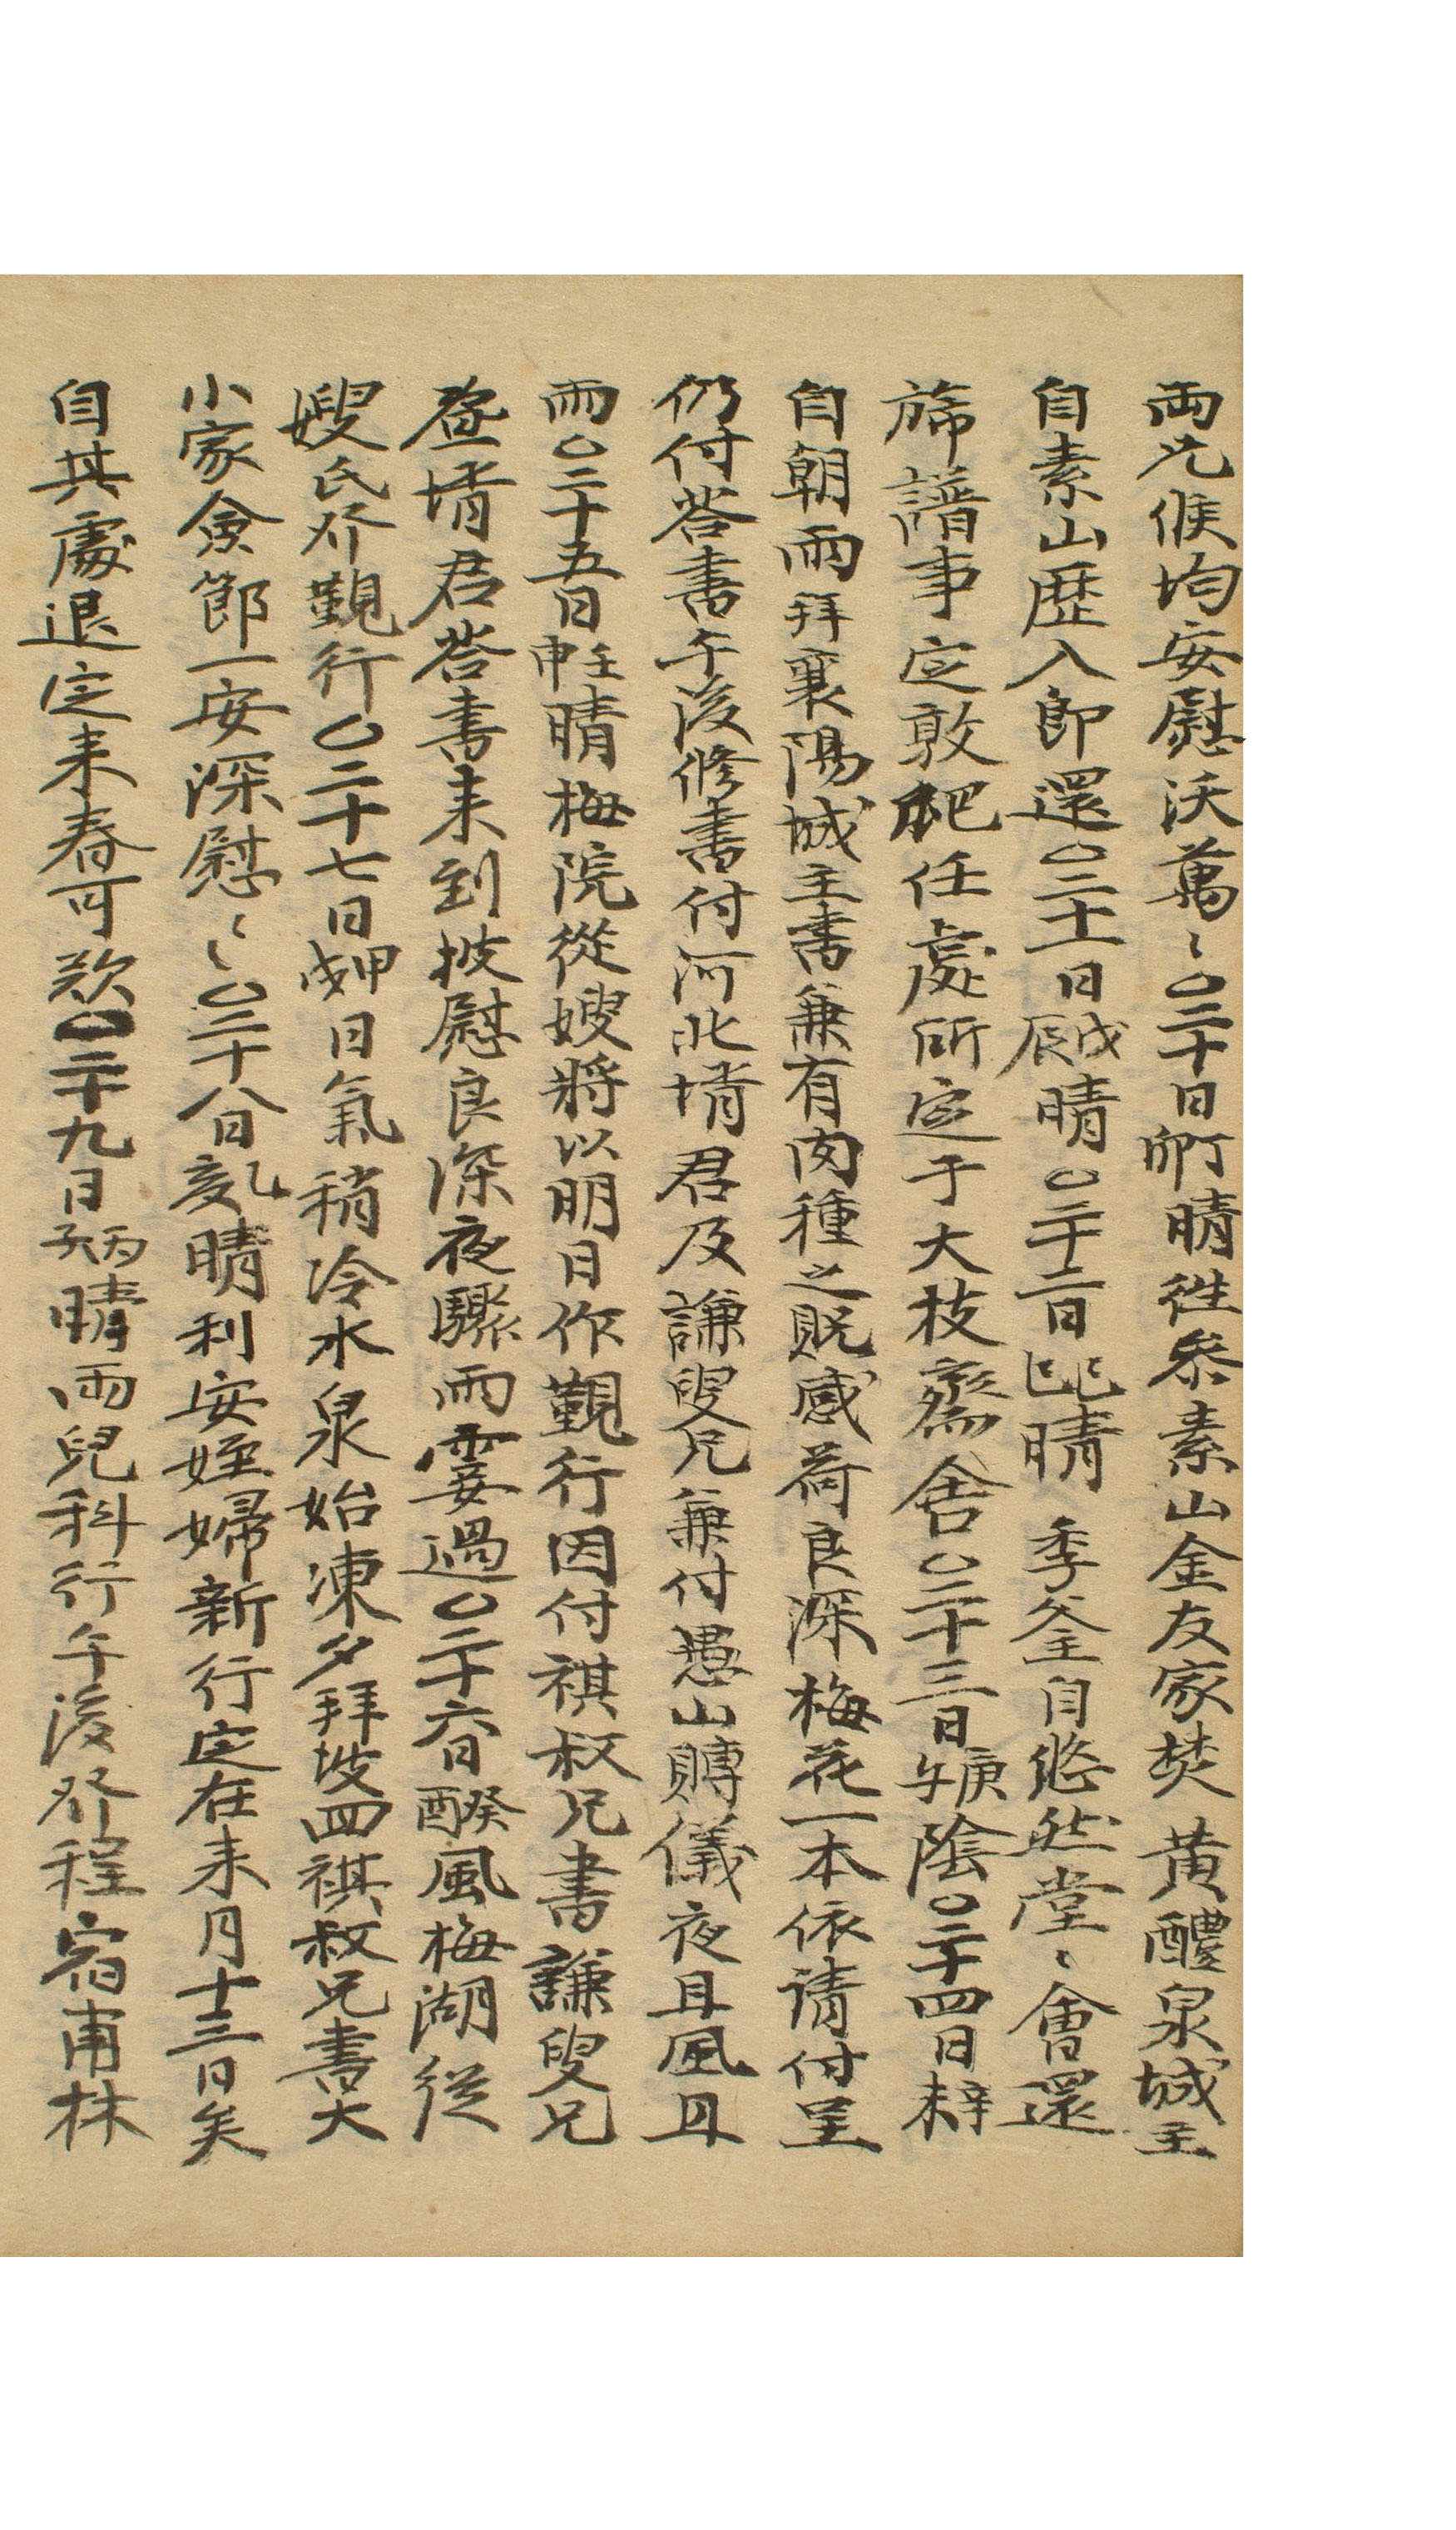 両兄候均安慰沃萬〻○二十日丁卯晴往參素山金友家焚黄醴泉城主
自素山歷入即還○二十一日戊辰晴○二十二日己巳晴 季釜自悠然堂〻會還
旆譜事定敦耙任處所定于大枝齋舍○二十三日庚午陰○二十四日辛未
自朝雨拜襄陽城主書兼有肉種之貺感荷良深梅花一本依請付呈
仍付答書午後修書付河北壻君及謙叟兄兼付愚山賻儀夜且風且
雨○二十五日壬申晴梅院從嫂將以明日作覲行因付祺叔兄書謙叟兄
壻君答書來到披慰良深夜驟雨霎過○二十六日癸酉風梅湖從
嫂氏發覲行○二十七日甲戌日氣稍冷水泉始凍夕拜坡四祺叔兄書大
小家僉節一安深慰〻○二十八日乙亥晴利安姪婦新行定在来月十三日矣
自其處退定来春可歎○二十九日丙子晴両兒科行午後發程宿甫林